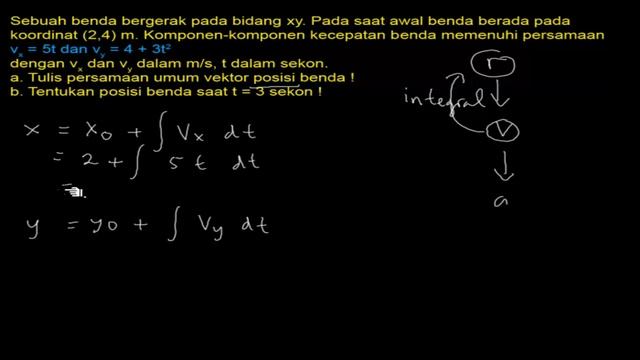 Sebuah benda bergerak pada bidang xy. Pada saat awal benda berada pada
koordinat (2,4) m. Komponen-komponen kecepatan benda memenuhi persamaan
vₓ = 5t dan vᵧ = 4 + 3t²
dengan vₓ dan vᵧ dalam m/s, t dalam sekon.
a. Tulis persamaan umum vektor posisi benda !
b. Tentukan posisi benda saat t = 3 sekon !
x = x₀ + ∫ Vₓ dt
= 2 + ∫ 5 t dt
=
y = y0 + ∫ Vᵧ dt
r
integral
v
a